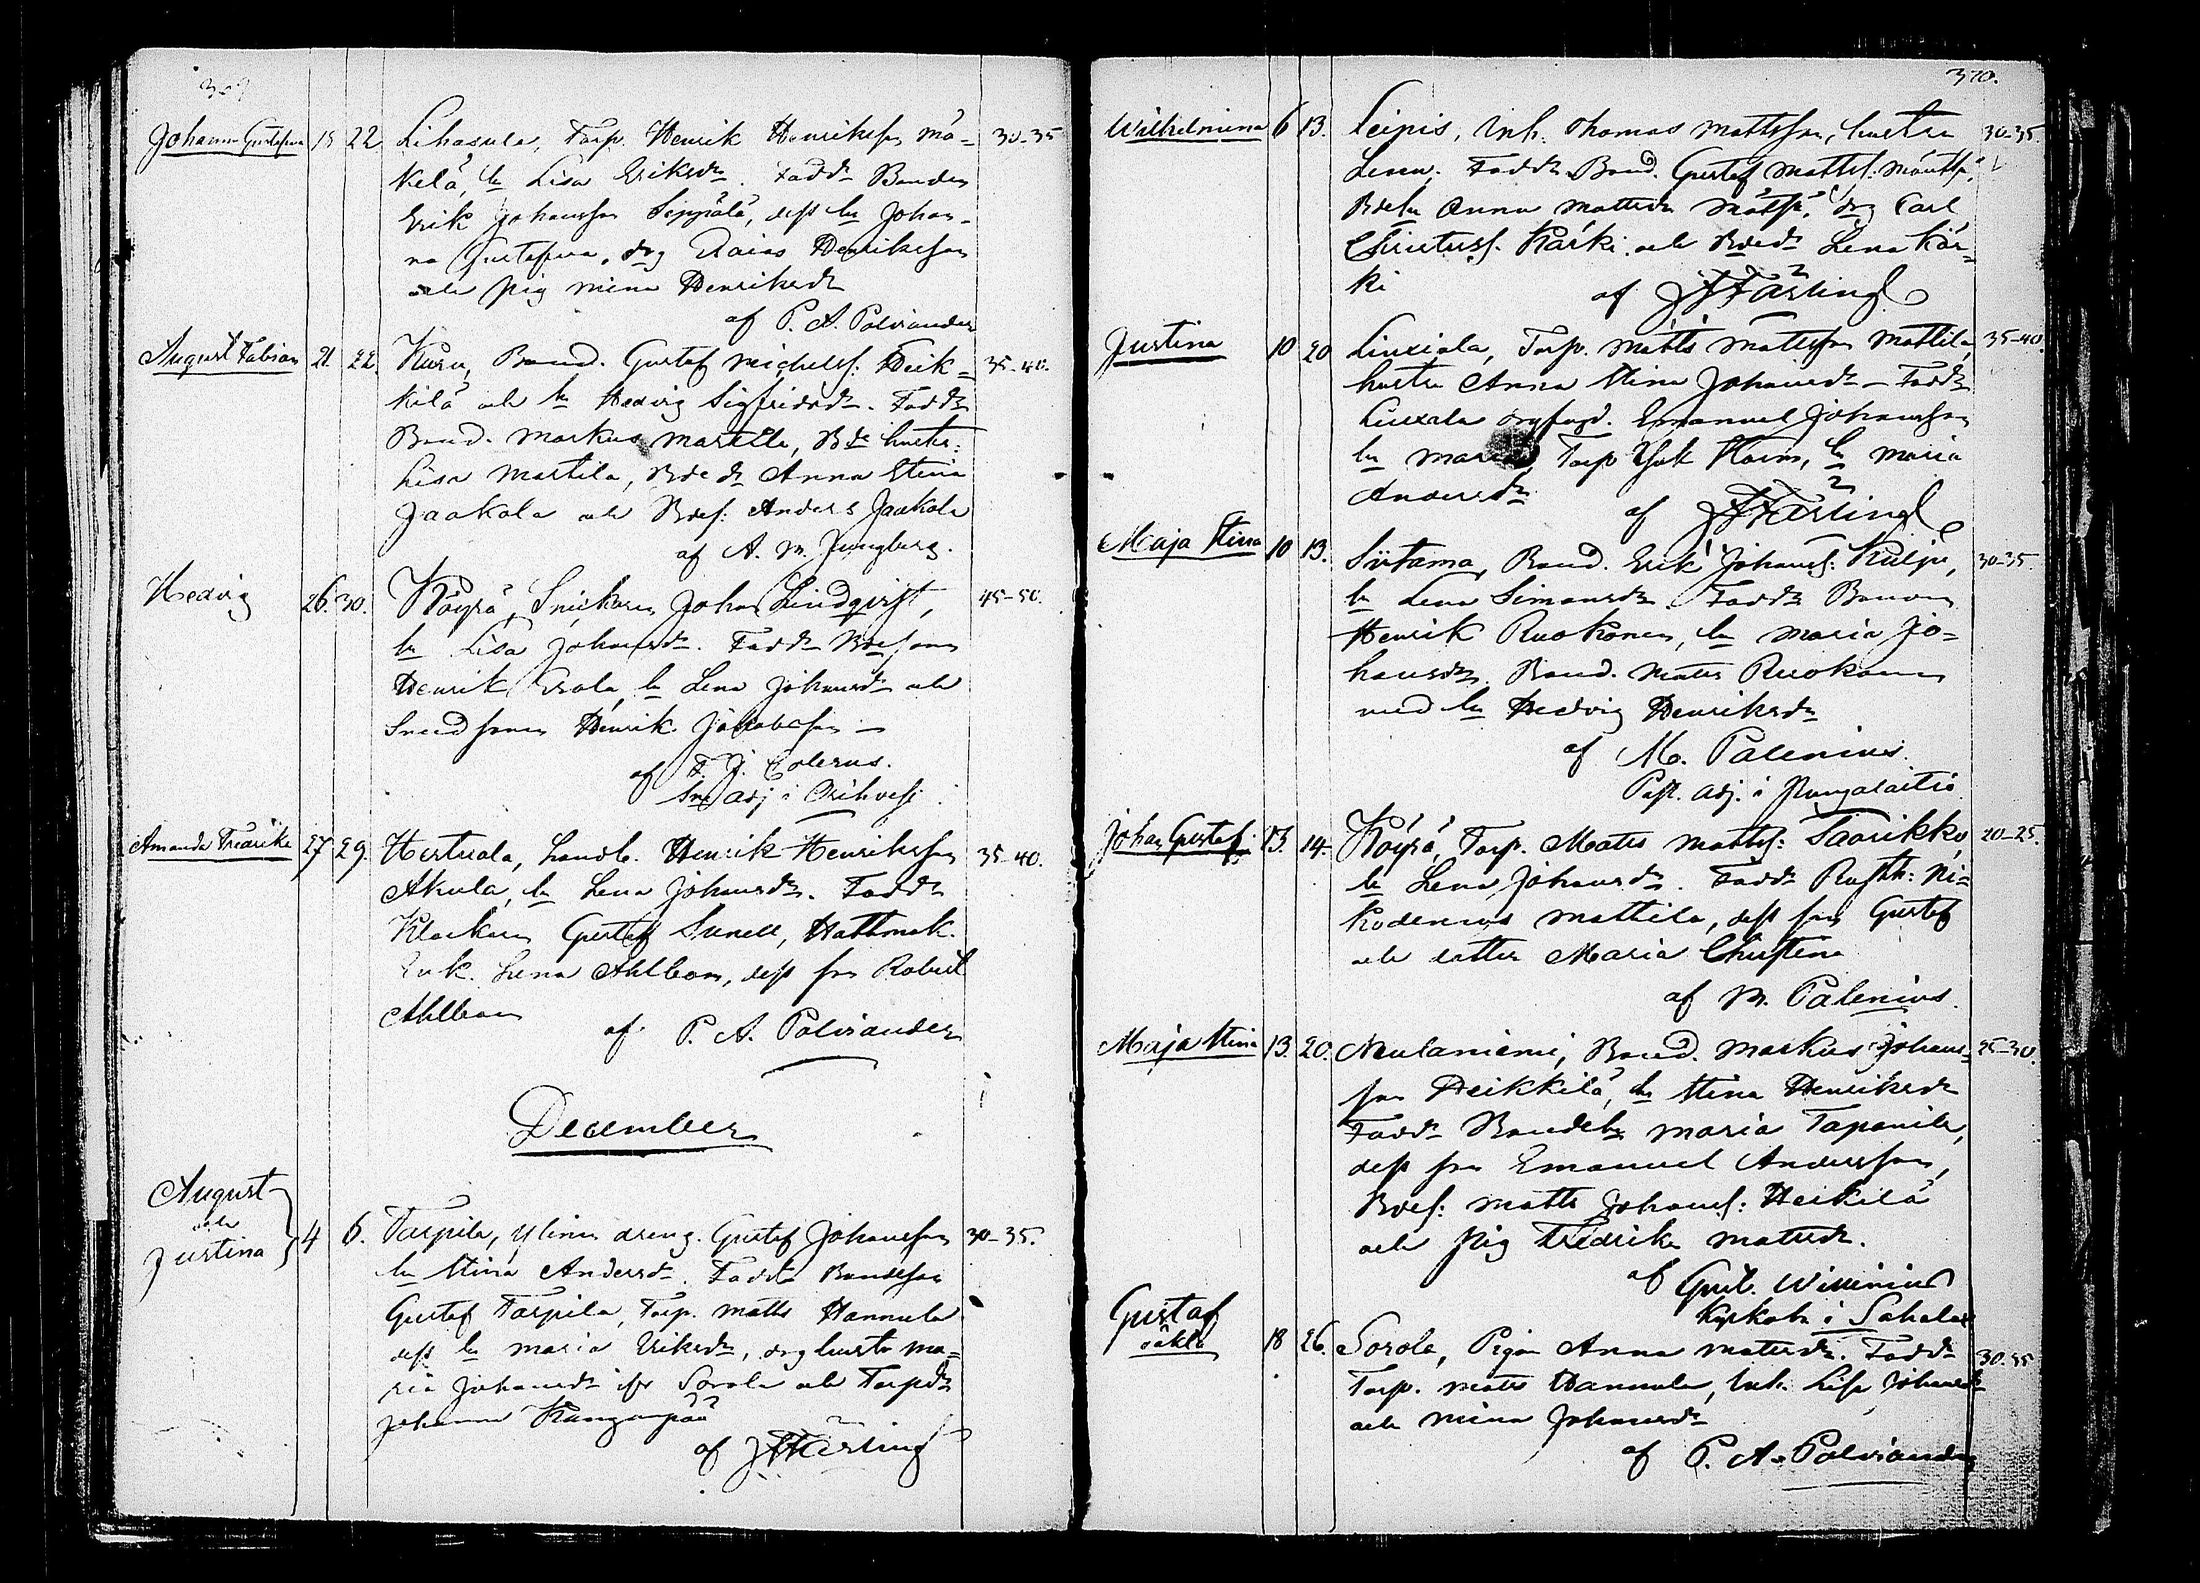 Johanna Gustafva 15 22 Lihasula, Torp. Henrik Henriksson Mä= 30-35
kelä, hu Lisa Eriksdr. Fadd. Bonden
Erik Johansson Seppälä, dess hu Johan-
na Gustafva, drg Esaias Henriksson
och pig Mina Henriksdr
af P. A. Polviander
August Fabian 21. 22. Kuru, Bond. Gustaf Michelss: Heik= 35-40.
kilä och hu Hedvig Sigfridsdr. Fadd.
Bond. Markus Martila, Bde hustr:
Lisa Martila, Bde dr Anna Stina
Jaakola och Bdes: Anders Jaakola
af A. M. Ljungberg.
Hedvig 26. 30. Köyrä, Snickaren Johan Lindqvist, 45-50.
hu Lisa Johansdr. Fadd. Bdesonen
Henrik Erola, hu Lena Johansdr och
Smedsonen Henrik Jakobsson —
af F. J. Colerus.
Sne adj i Orihvesi
Amanda Fredrika 27 29. Hertuala, Landb. Henrik Henriksson 35-40.
Akula, hu Lena Johansdr. Fadd.
Klockaren Gustaf Sunell, Hattmak.
Enk. Lena Ahlbom, dess son Robert
Ahlbom
af P. A. Polviander
December
August
och
Justina 4 6. Tarpila, Ylinen dreng. Gustaf Johansson 30-35.
hu Stina Andersdr. Fadd. Bondeson
Gustaf Tarpila, Torp. Matts Hannula
dess hu Maria Eriksdr, drg hustr Ma=
ria Johansdr ifr Sorola och Torpdr
Johanna Kanganpää
af J F Färling
370.
Wilhelmina 6 13. Leipis, Inh. Thomas Mattsson, hustru 30-35.
Lena. Fadd. Bond. Gustaf Mattss:
Bdehu Anna Mattsdr drg Carl
Kärki och Bdedr Lena Kär=
ki
af J F Färling
Justina 10 20 Liuxiala, Torp. Matts Mattsson Mattila, 35-40.
hustru Anna Stina Johansdr — Fadd.
Liuxala Emanuel Johansson
hu Maria, Torp Isak hu Maria
Andersdr
af J F Färling
Maja Stina 10 13. Siitama, Bond. Erik Johanss: Kulju, 30-35.
hu Lena Simonsdr. Fadd. Bonden
Henrik Ruokonen, hu Maria Jo=
hansdr. Bond. Matts Ruokonen
med hu Hedvig Henriksdr
af M. Palenius.
Past. adj. i Kangasaitis
Johan Gustaf 13. 14. Köyrä, Torp. Matts Mattss: Taarikko 20-25.
hu Lena Johansdr. Fadd. Rusth: Ni=
kodemus Mattila, dess son Gustaf
och dotter Maria Christina
af M. Palenius.
Maja Stina 13. 20. Neulaniemi, Bond. Markus Johans= 25-30.
son Heikkilä, hu Stina Henriksdr
Fadd. Bondehu Maria Tapanila,
dess son Emanuel Andersson,
Bdes: Matts Johanss: Heikilä
och Pig Fredrika Mattsdr.
af Gust. Willenius
Kyrkoh. i Sahalax
Gustaf
oäkta 18 26. Sorola, Pigan Anna Mattsdr. Fadd. 30-35
Torp. Matts Hannula, Inh. Lisa Johansdr
och Mina Johansdr
af P. A. Polviander